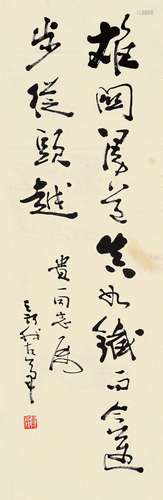 雄關漫道真如鐵而今邁
步從頭越
貴一同志屬